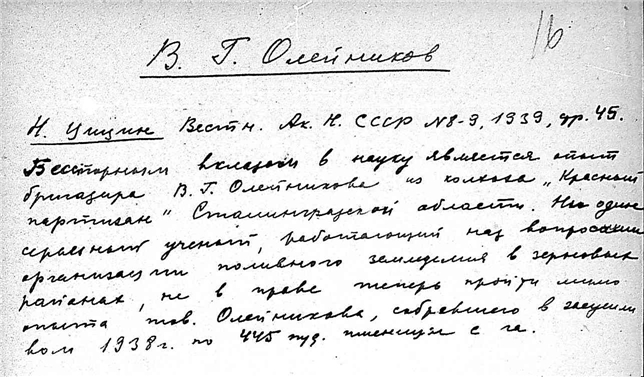 16
В. Г. Олейников
Н. Цицин Вестн. Ак. Н. СССР N8-9, 1939, стр. 45.
Бесспорным вкладом в науку является опыт
бригадира В. Г. Олейникова из колхоза „Красный
партизан" Сталинградской области. Ни один
серьезный ученый, работающий над вопросами
организации поливного земледелия в зерновых
районах, не в праве теперь пройти мимо
опыта тов. Олейникова, собравшего в засушли
вом 1938 г. по 445 пуд. пшеницы с га.